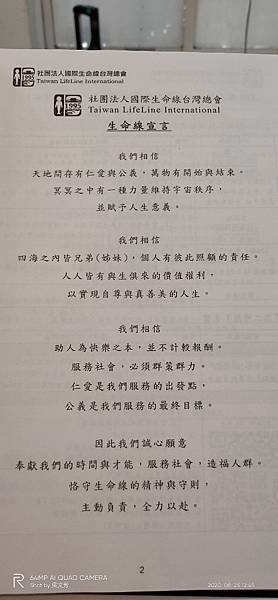 社團法人國際生命線台灣總會
Taiwan LifeLine International
1995
社團法人國際生命線台灣總會
Taiwan LifeLine International
生命線宣言
我們相信
天地間存有仁愛與公義，萬物有開始與結束。
冥冥之中有一種力量維持宇宙秩序，
並賦予人生意義。
我們相信
四海之內皆兄弟(姊妹)，個人有彼此照顧的責任。
人人皆有與生俱來的價值權利，
以實現自尊與真善美的人生。
我們相信
助人為快樂之本，並不計較報酬。
服務社會，必須群策群力。
仁愛是我們服務的出發點，
公義是我們服務的最終目標。
因此我們誠心願意
奉獻我們的時間與才能，服務社會，造福人群。
恪守生命線的精神與守則，
主動負責，全力以赴。
2
64MP AI QUAD CAMERA
Shot by
2020/08/25 12:45